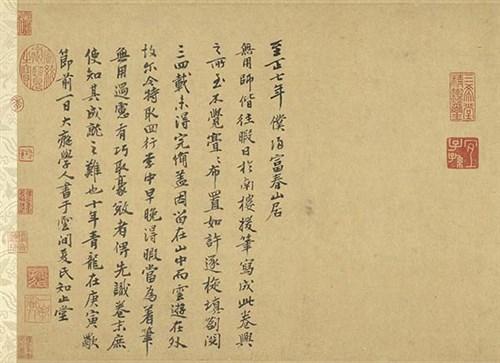 至正七年僕歸富春山居
無用師偕往暇日於南樓援筆寫成此卷興
之所至不覺亹亹布置如許逐旋填劄閱
三四載未得完備蓋因留在山中而雲遊在外
故尔今特取回行李中早晚得暇當為著筆
無用過慮有巧取豪敚者俾先識卷末庶
使知其成就之難也十年青龍在庚寅歜
節前一日大癡學人書于雲間夏氏知止堂
三希堂精鑑璽
宜子孫